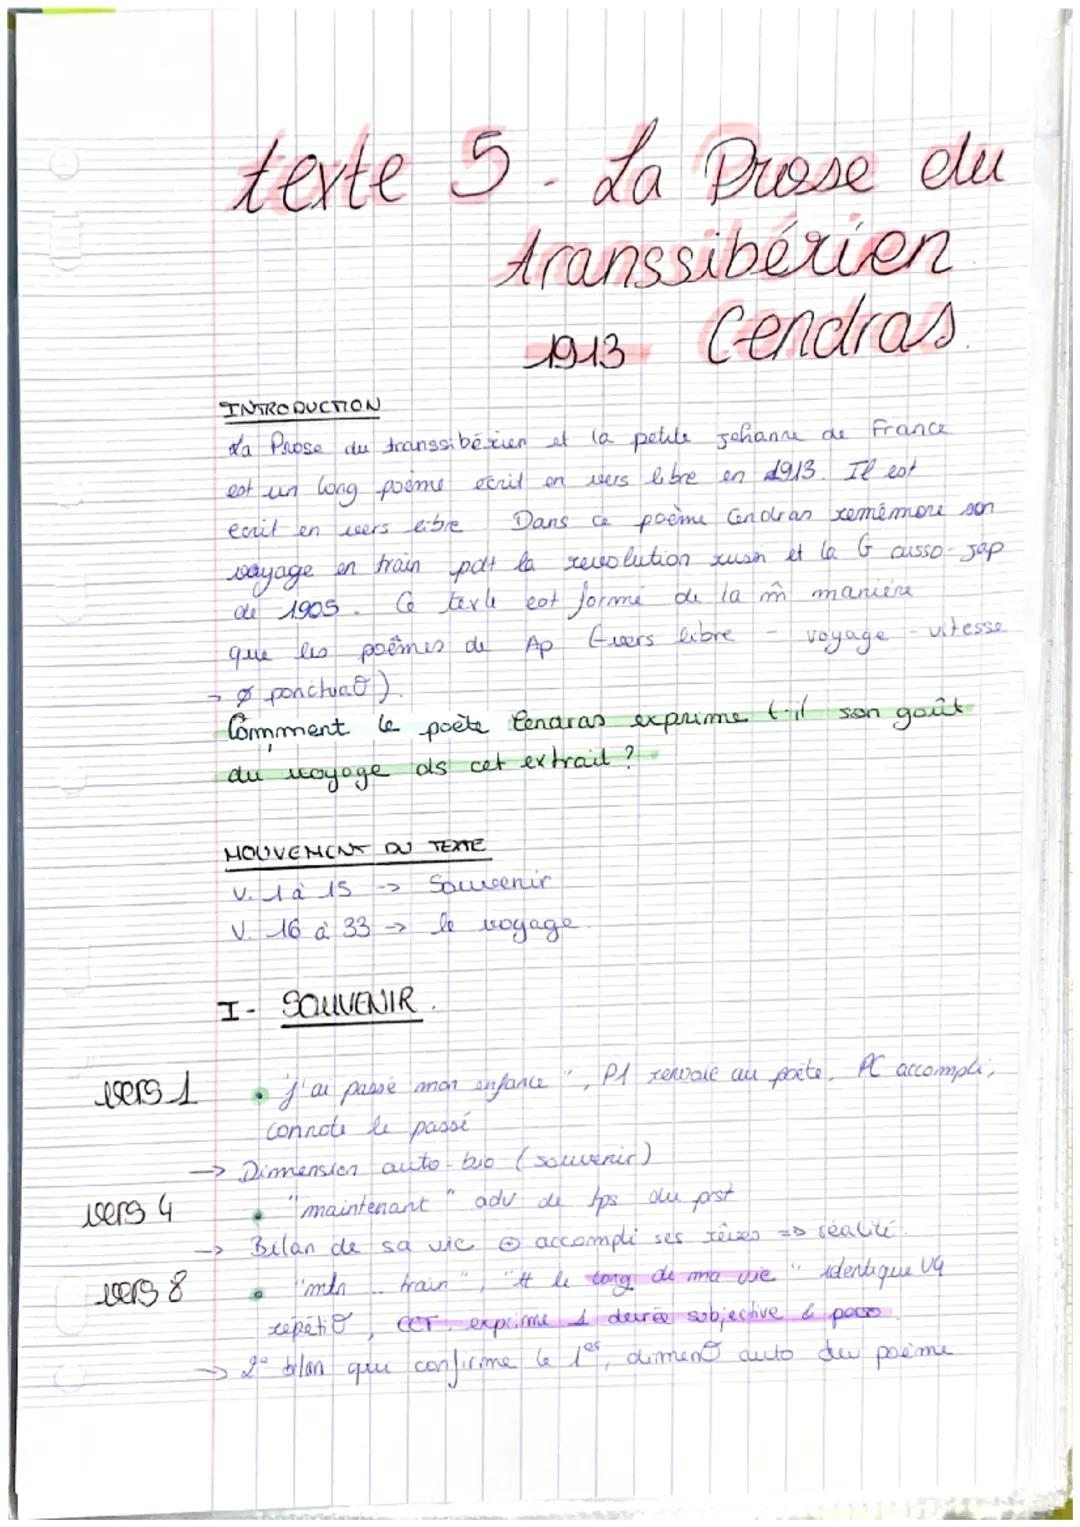 texte 5 - La Prose du
transsibérien
1913 Cendras.
INTRODUCTION
La Prose du transsibérien et la petite Jehanne de France
est un long poème écrit en vers libre en 1913. Il est
ecrit en vers libre Dans ce poème Cendras remémore son
voyage en train pdt la revolution russe et la G russo-jap
de 1905. Ce texte est formé de la m̂ manière
que les poêmes de Ap (vers libre - voyage - vitesse
→ ∅ ponctua⁰).
Comment le poète Cendras exprime t-il son goût
du voyage ds cet extrait ?
MOUVEMENT DU TEXTE
V. 1 à 15 -> Souvenir
V. 16 à 33 -> le voyage.
I- SOUVENIR.
vers 1 • "j'ai passé mon enfance", P1 renvoie au poète, PC accompli,
connote le passé
→ Dimension auto-bio (souvenir)
vers 4 • "maintenant" adv de tps du prst
→ Bilan de sa vie ⊕ accompli ses rêves => réalité.
vers 8 • "mtn .. train", "tt le long de ma vie" identique V9
répéti⁰, CCT, exprime 1 durée subjective
→ 2e bilan qui confirme le 1er, dimen⁰ auto du poème